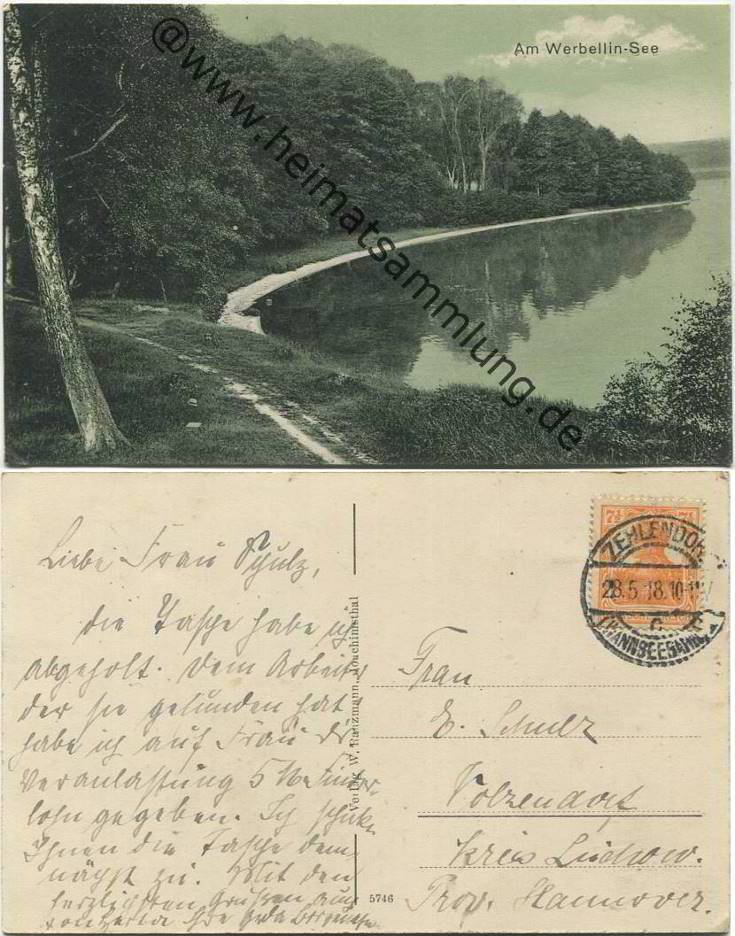 Am Werbellin-See
@www.heimatsammlung.de
Liebe Frau Schulz,
die Tasche habe ich
abgeholt. Dem Arbeiter
der sie gefunden hat
habe ich auf Frau Dr
Veranlassung 5 M Finder-
lohn gegeben. Ich schicke
Ihnen die Tasche dem-
nächst zu. Mit den
herzlichsten Grüßen auch
Verlag W. Ranzmann, Joachimsthal
5746
7½ 7½
ZEHLENDORF
28.5.18.10-11V
(WANNSEEBAHN)
Frau
E. Schulz
Volzendorf
Kreis Lüchow.
Prov. Hannover.